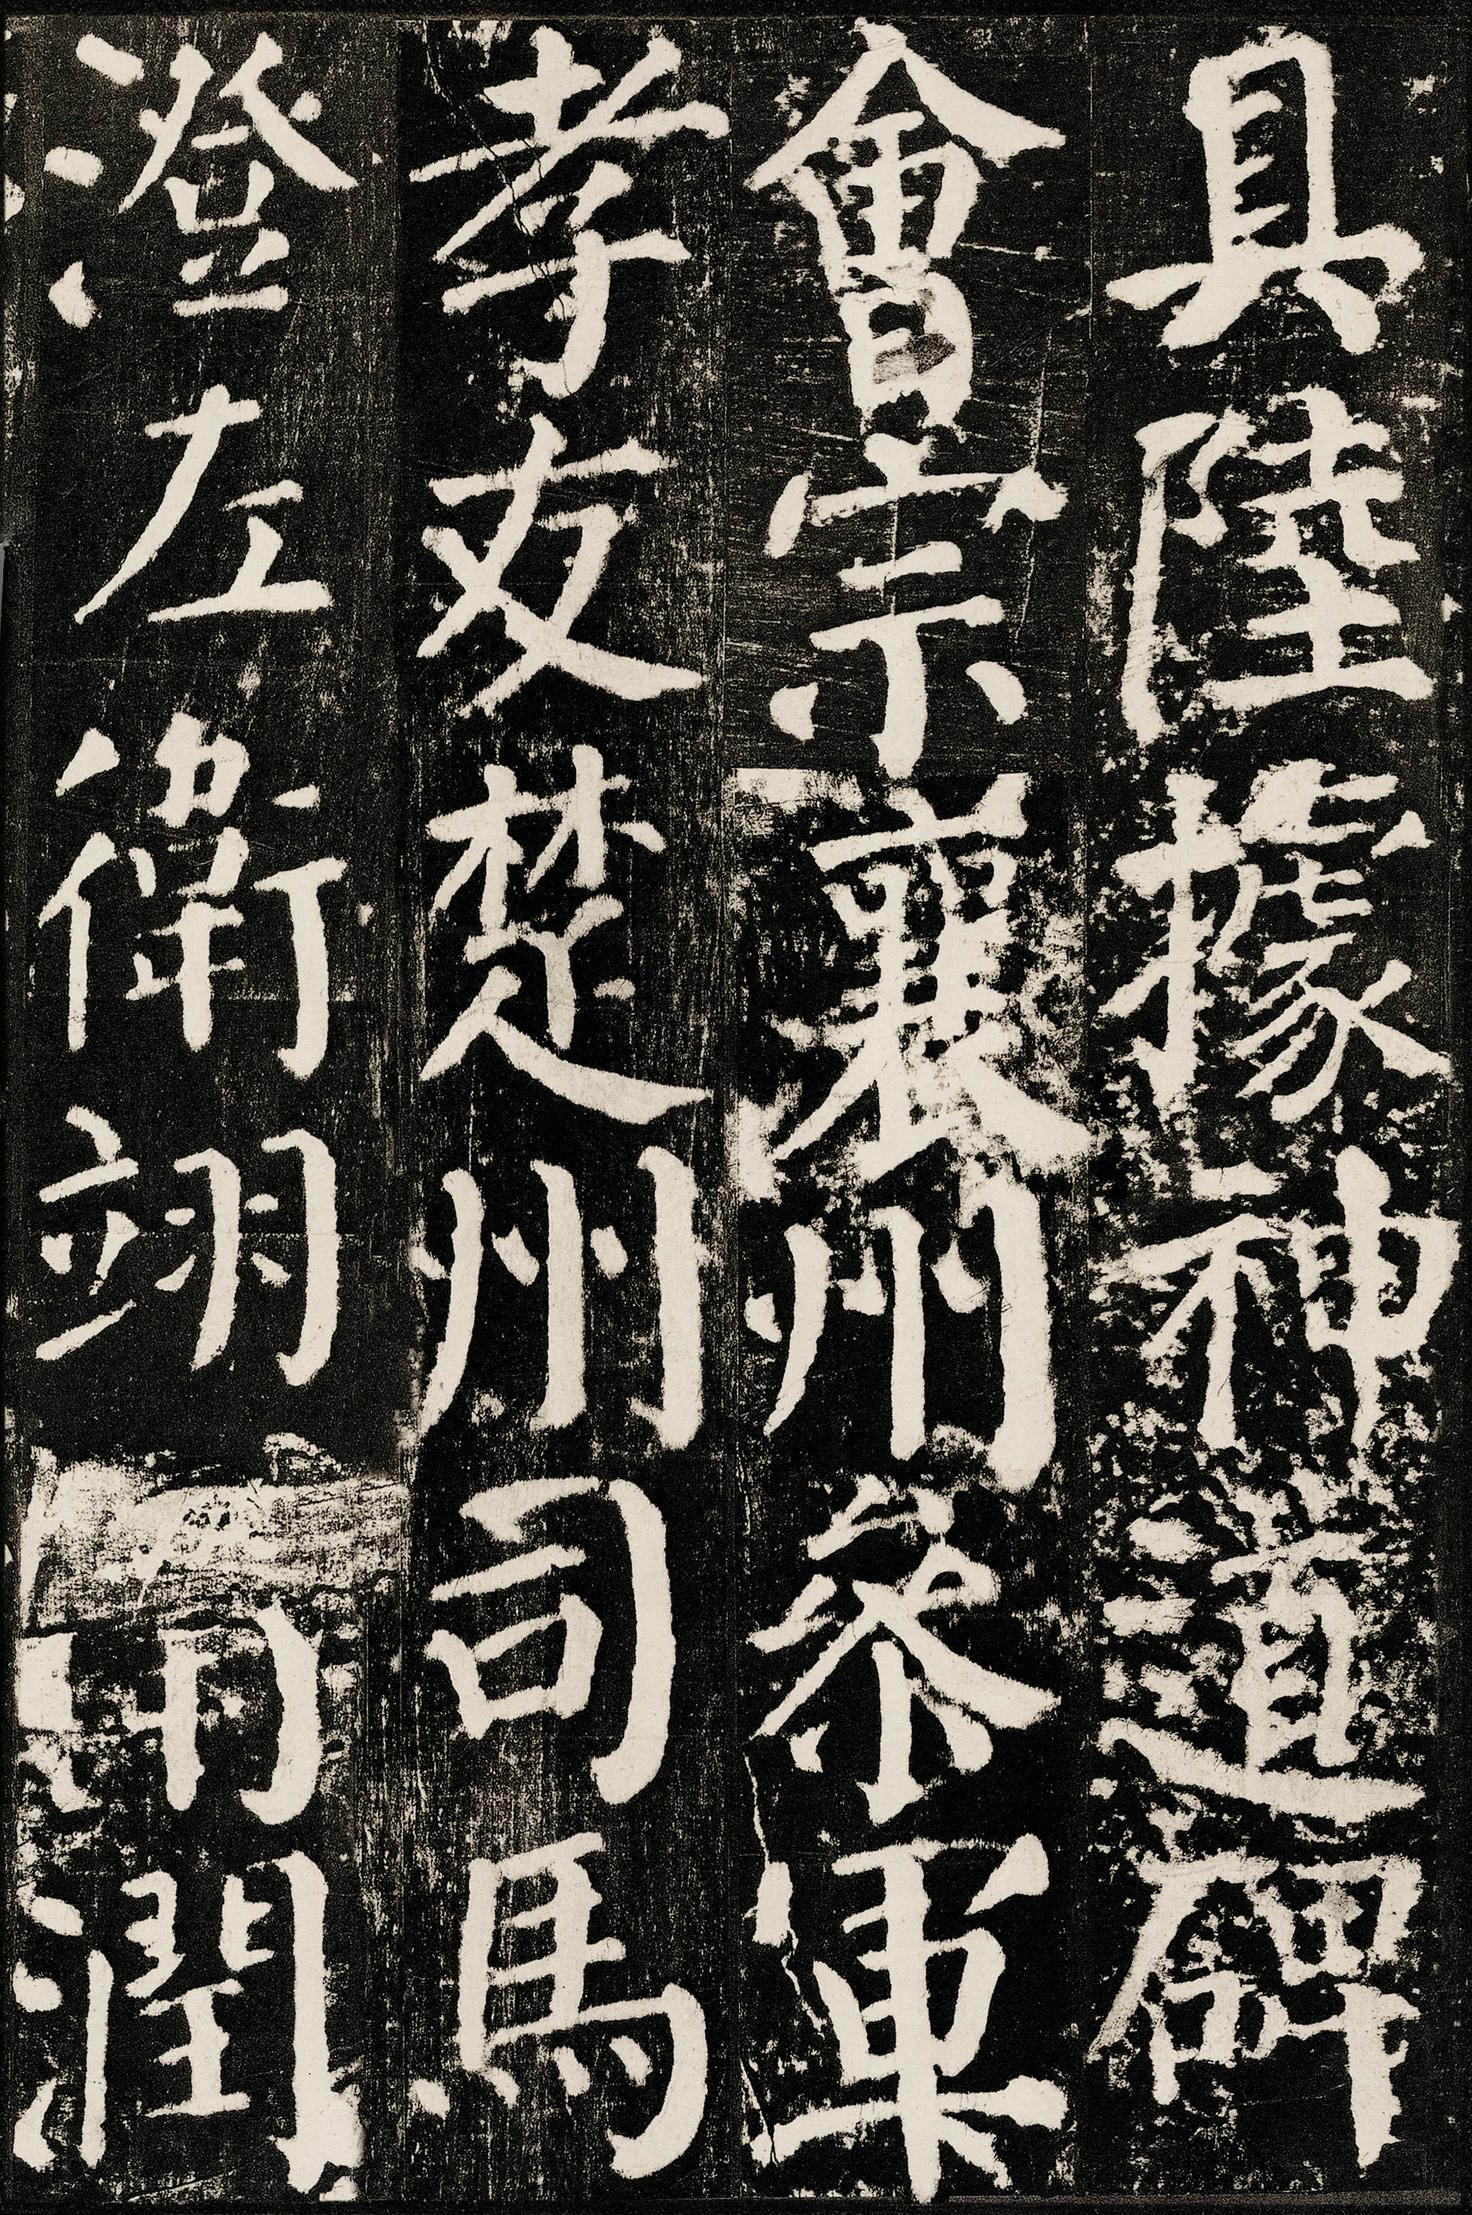 具陸據神道碑
會宗襄州參軍
孝友楚州司馬
澄左衛翊
潤